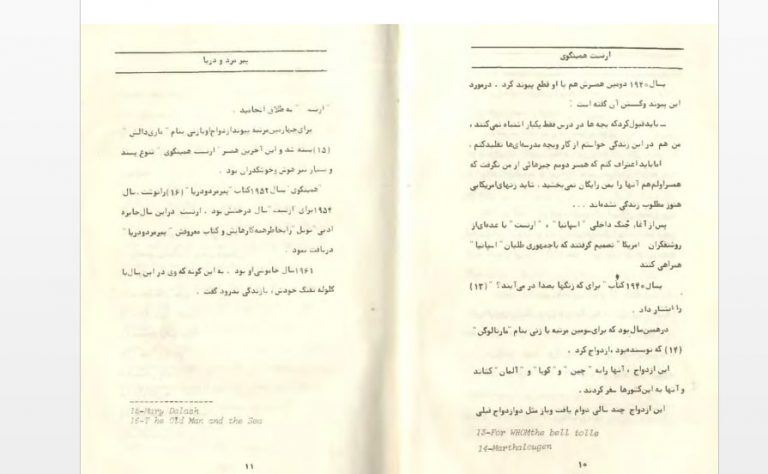 ارنست همینگوی
بسال ۱۹۲۰ دومین همسرش هم با او قطع پیوند کرد . درمورد
این پیوند وگسستن آن گفته است :
ــ بایدقبول‌کردکه بچه ها در درس فقط یکبار اشتباه نمی‌کنند ،
من هم در این زندگی خواستم از کار وبچه مدرسه‌ای‌ها تقلیدکنم .
امابایداعتراف کنم که همسر دومم چیزهائی از من نگرفت که
همسراولم‌هم آنها را بمن رایگان نمی‌بخشید . شاید زنهای‌امریکائی
هنوز مطلوب زندگی نشده‌اند ...
پس‌از آغاز جُنگ داخلی "اسپانیا" ، "ارنست" با عده‌ای‌از
روشنفکران امریکا" تصمیم گرفتند که باجمهوری طلبان "اسپانیا"
همراهی کنند
بسال ۱۹۴۰ کتاب "برای که زنگها بصدا در می‌آیند؟" (۱۳)
را انتشار داد .
درهمین‌سال‌بود که برای‌سومین مرتبه با زنی بنام "مارتالوگن"
(۱۴) که نویسنده‌بود ،ازدواج کرد .
این ازدواج ، آنها رابه "چین" و "کوبا" و "آلمان" کشاند
و آنها به این‌کشورها سفر کردند .
این ازدواج چند سالی دوام یافت وباز مثل دوازدواج قبلی
13-For WHOMthe bell tolls
14-Marthalougen
۱۰
پیر مرد و دریا
"ارنست" به طلاق انجامید .
برای‌چهارمین‌مرتبه پیوندازدواج‌اوبازنی بنام "ماری‌دالش"
(۱۵) بسته شد و این آخرین همسر "ارنست همینگوی" تنوع پسند
و بسیار تیز هوش وخوشگذران بود .
"همینگوی" بسال ۱۹۵۲ کتاب "پیرمردودریا" (۱۶) رانوشت . سال
۱۹۵۴ برای "ارنست" سال درخشش بود . ارنست دراین سال‌جایزه
ادبی "نوبل" رابخاطرهمه‌کارهایش و کتاب معروفش "پیرمردودریا"
دریافت نمود .
۱۹۶۱ سال خاموشی‌او بود . به این گونه که وی در این سال‌با
گلوله تفنگ خودش ، بازندگی بدرود گفت .
15-Mary Dolash
16-T he Old Man and the Sea
۱۱